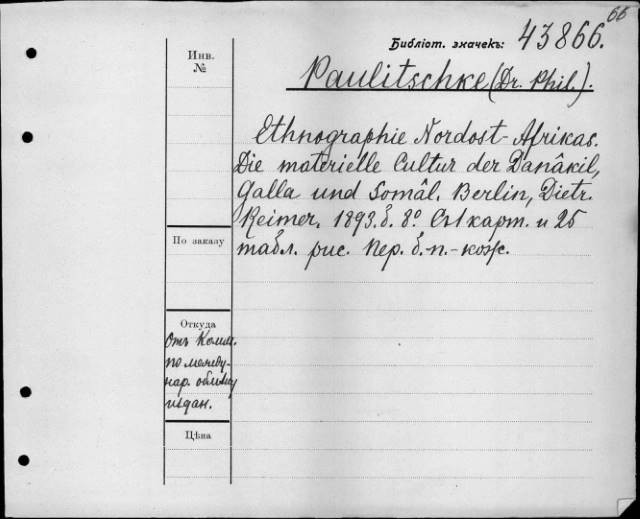 66
Библіот. значекъ: 43866.
Инв.
№
Paulitschke (Dr. Phil.).
Ethnographie Nordost-Afrikas.
Die materielle Cultur der Danâkil,
Galla und Somâl. Berlin, Dietr.
Reimer. 1893. б. 8º. Съ 1 карт. и 25
табл. рис. Пер. б. п.-кож.
По заказу
Откуда
Отъ Комм.
по между-
нар. обмѣну
издан.
Цѣна